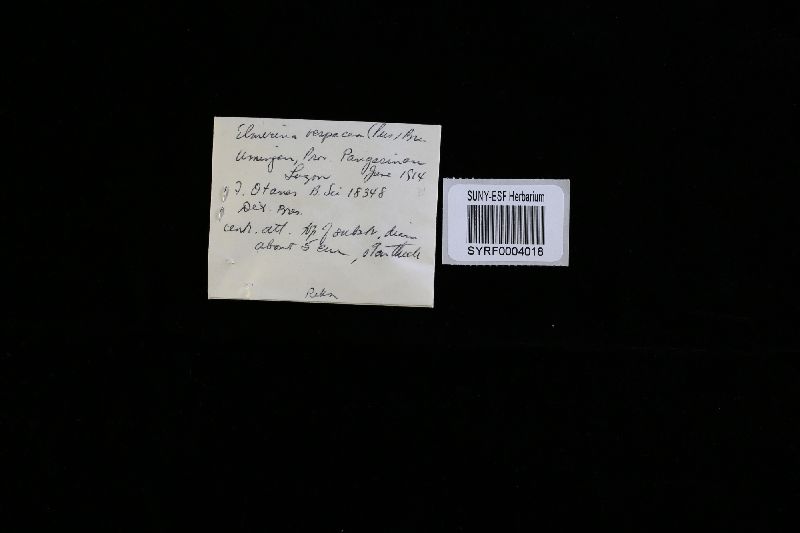 Elmerina vespacea (Pers) Bres
Umingan, Prov. Pangasinan
Luzon June 1914
F. Otanes B. Sci 18348
Det. Bres.
cent. att. to substr, diam
about 5 cm,
SUNY-ESF Herbarium
SYRF0004016